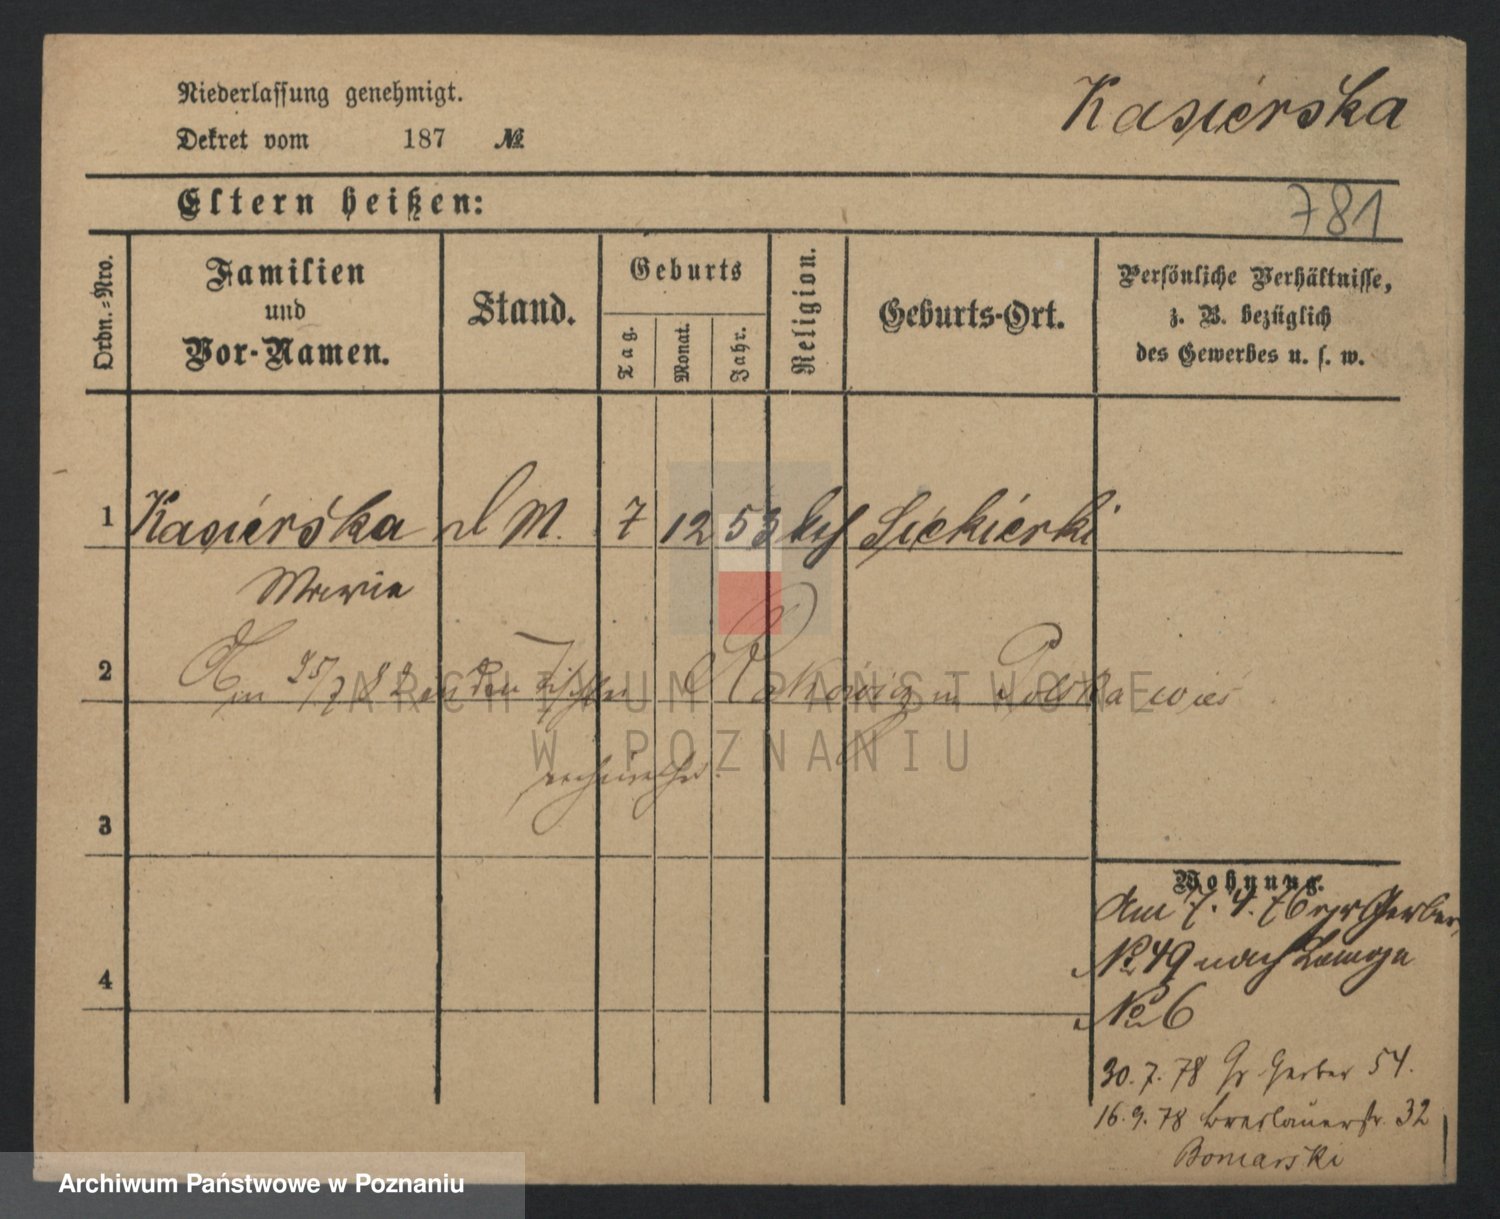 Kasierska
Niederlassung genehmigt.
Dekret vom 187 №
Eltern heißen:
781
Ordn.-Nro.
Familien
und
Vor-Namen.
Stand.
Geburts
Tag.
Monat.
Jahr.
Religion.
Geburts-Ort.
Persönliche Verhältnisse,
z. B. bezüglich
des Gewerbes u. s. w.
1 Kasierska d M. 7 12 53 kath Siekierki
Marie
2 Am 25/7 82 an den Tischler in Polskawies
ARCHIWUM PAŃSTWOWE
W POZNANIU
3
Wohnung.
Am 7. 4. 76 gr Gerber
№ 49 nach
4
№ 6
30. 7. 78 Gr Gerber 54.
16. 9. 78 Breslauerstr. 32
Bomarski
Archiwum Państwowe w Poznaniu